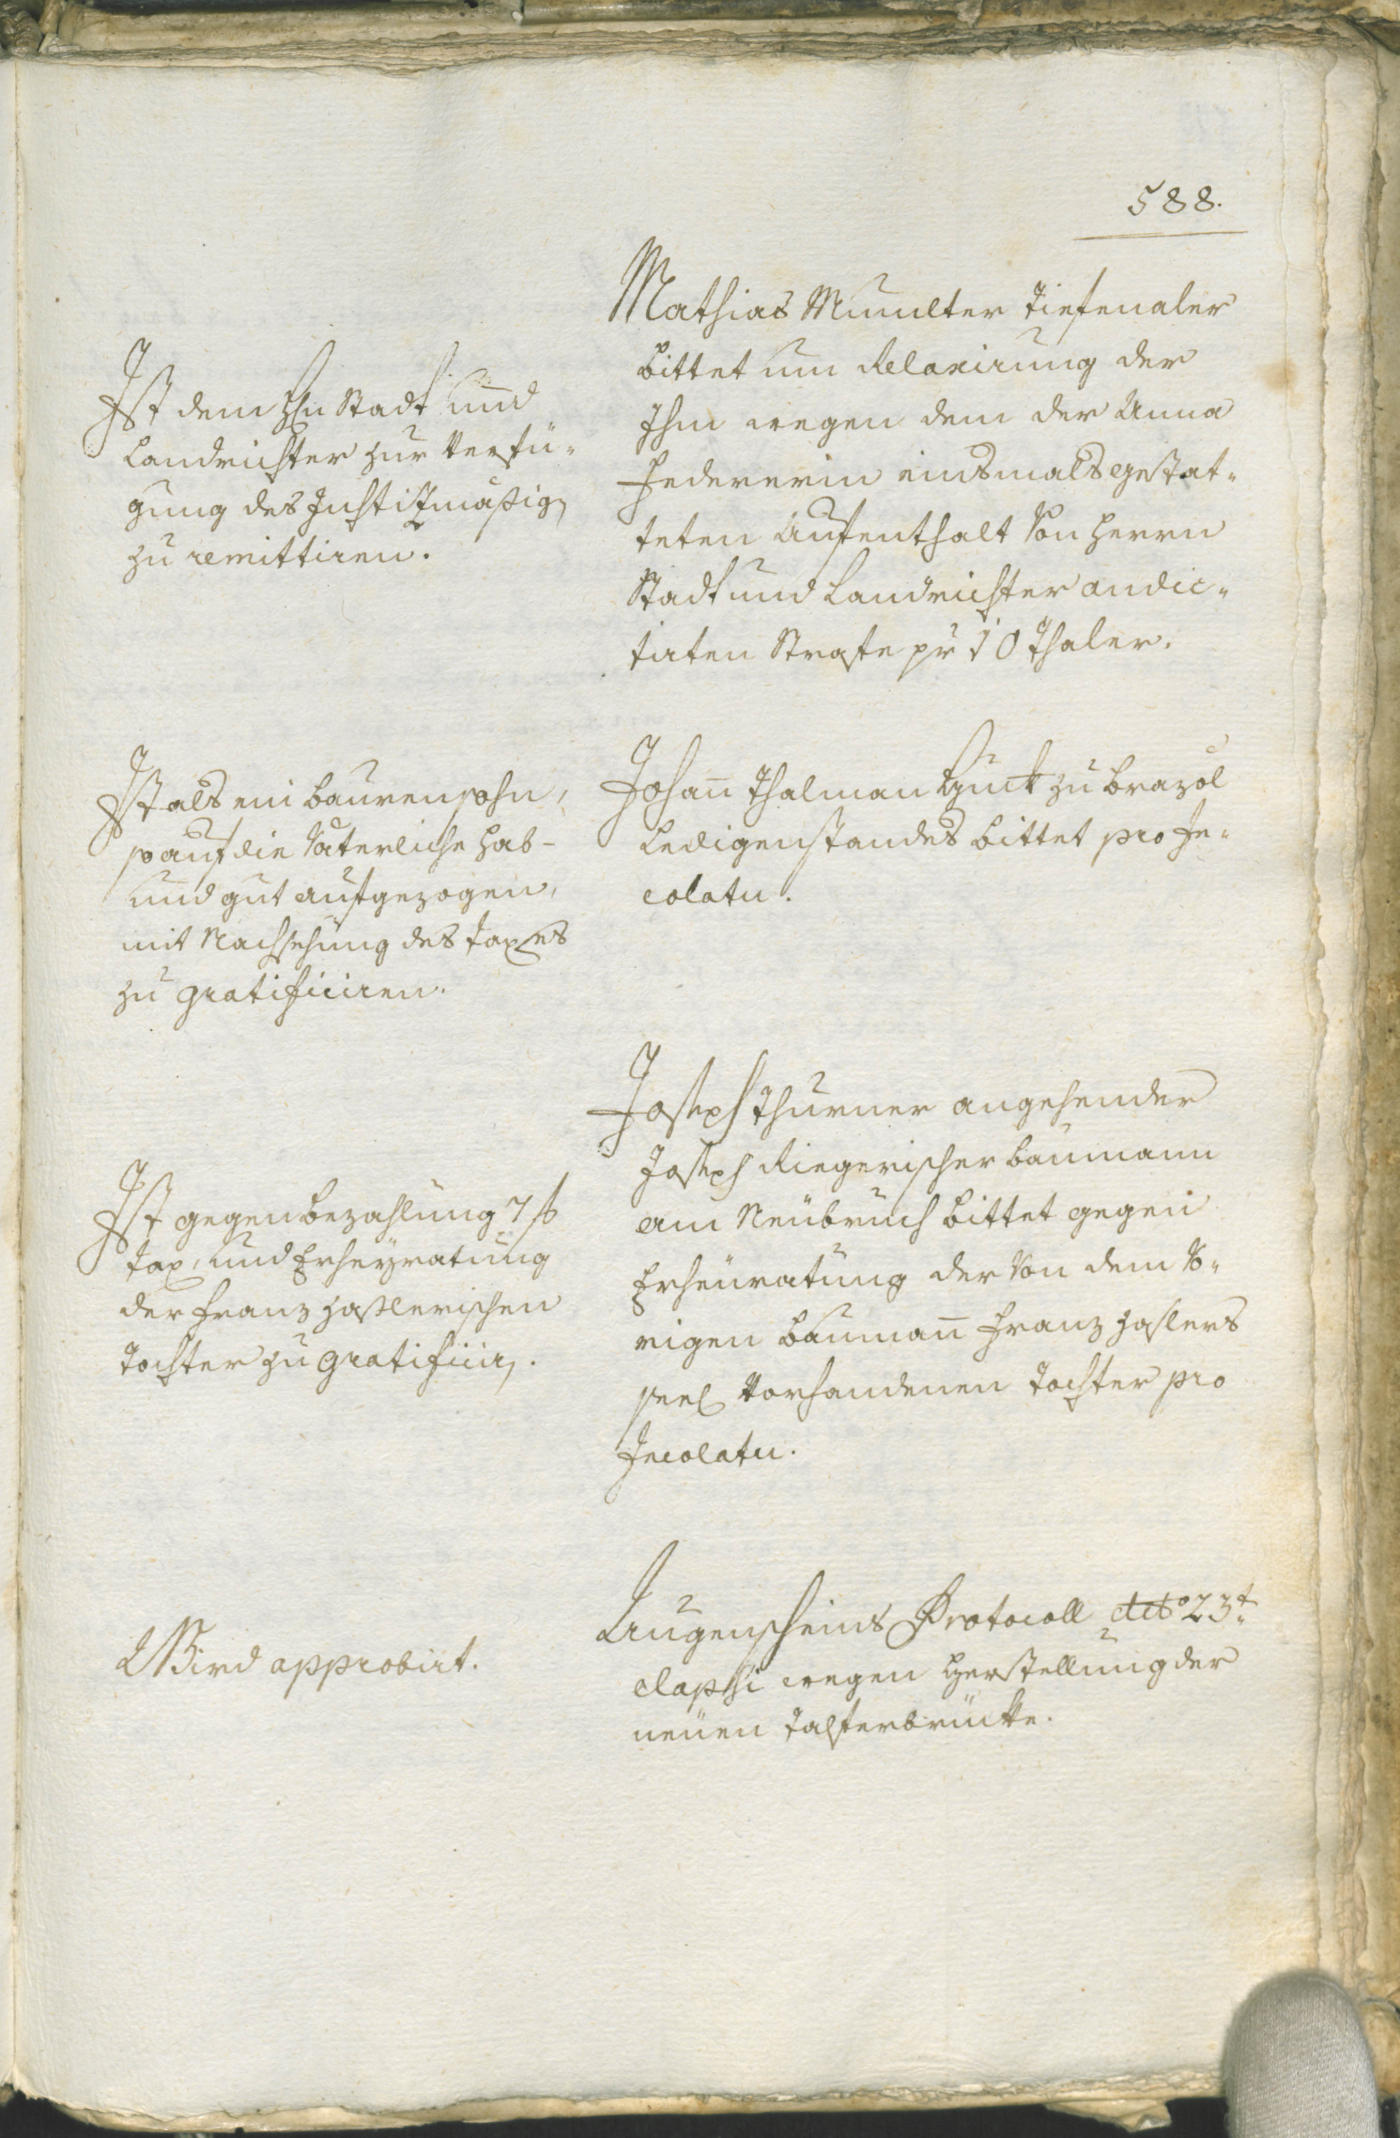 588.
Mathias Munter Tiefenaler
bittet um Relaxirung der
Ihm wegen dem der Anna
Federerin einsmals gestat-
teten Aufenthalt von Herrn
Stadt und Landrichter andic-
tirten Strafe pr 10 Thaler.
Ist dem Hn Stadt und
Landrichter zur Verfü-
gung des Justitzmäßig
zu remittiren.
Johan̄ Thalman zu
Ledigenstandes bittet pro In-
colatu.
Ist als ein Baurensohn,
so auf die Väterliche Hab-
und gut aufgezogen,
mit Nachsehung des Taxes
zu gratificiren.
Joseph Thurner angehender
Joseph Riegerischer Baumann
am Neübruch bittet gegen
Erheüratung der von dem v-
rigen Bauman̄ Franz Haslers
seel vorhandenen Tochter pro
Incolatu.
Ist gegen Bezahlung 7 f
Tax, und Erheyratung
der Franz Haßlerischen
Tochter zu gratificir.
Augenscheins Protocoll dto 23t
elapsi wegen Herstellung der
neüen Talferbrücke.
Wird approbirt.